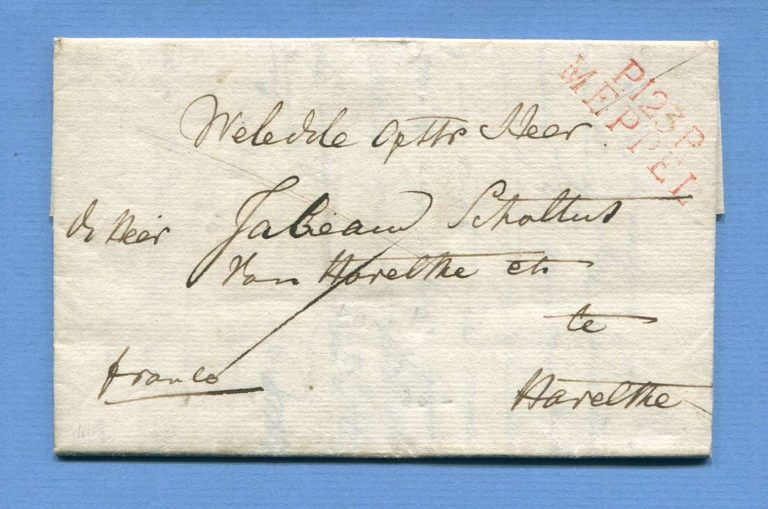 P.123.P.
MEPPEL
Weledele Heer
de Heer Scholtus
Van Havelthe etc
te
franco
Havelthe